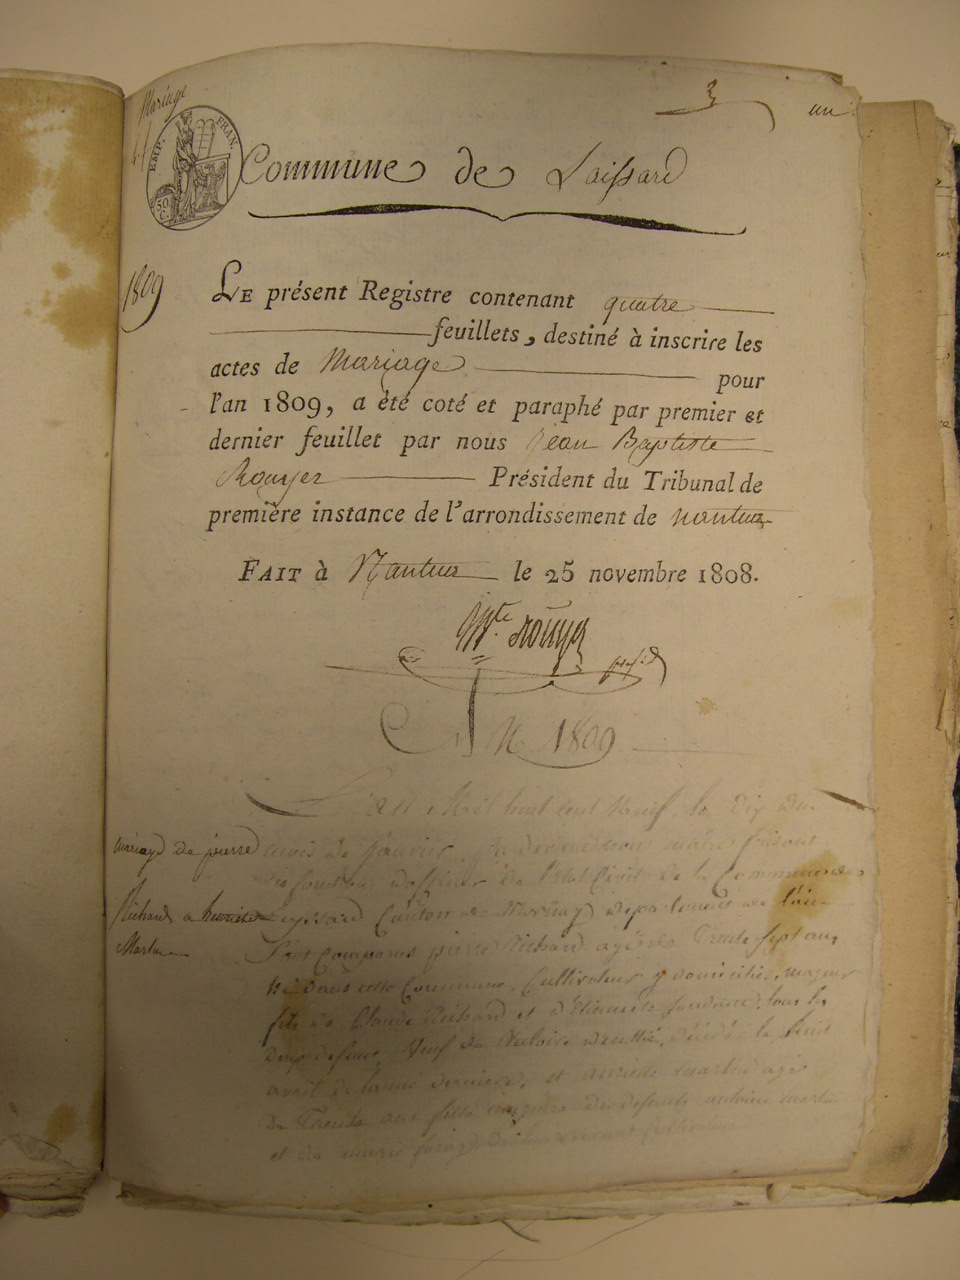 Mariage
3
un
EMP. FRAN.
50 C.
Commune de Laissard
1809
LE présent Registre contenant quatre
feuillets, destiné à inscrire les
actes de Mariage pour
l'an 1809, a été coté et paraphé par premier et
dernier feuillet par nous Jean Baptiste
Rouyer Président du Tribunal de
première instance de l'arrondissement de nantua
FAIT à Nantua le 25 novembre 1808.
Rouyer
1809
L'an Mil huit cent Neuf le dix du
mariage de pierre
mois de Janvier, maire faisant
les fonctions d'officier de l'état Civil de la Commune de
Richard a
Canton de département de l'ain
Martin
Sont Comparus pierre Richard agé de Trente sept ans
né dans cette Commune, Cultivateur y domicilié, majeur
fils de Claude Richard et d'Etiennette tous les
deux defunts, Veuf de décédé le huit
avril de l'année derniere, et agée
de Trente ans fille majeure des defunts antoine martin
et de marie